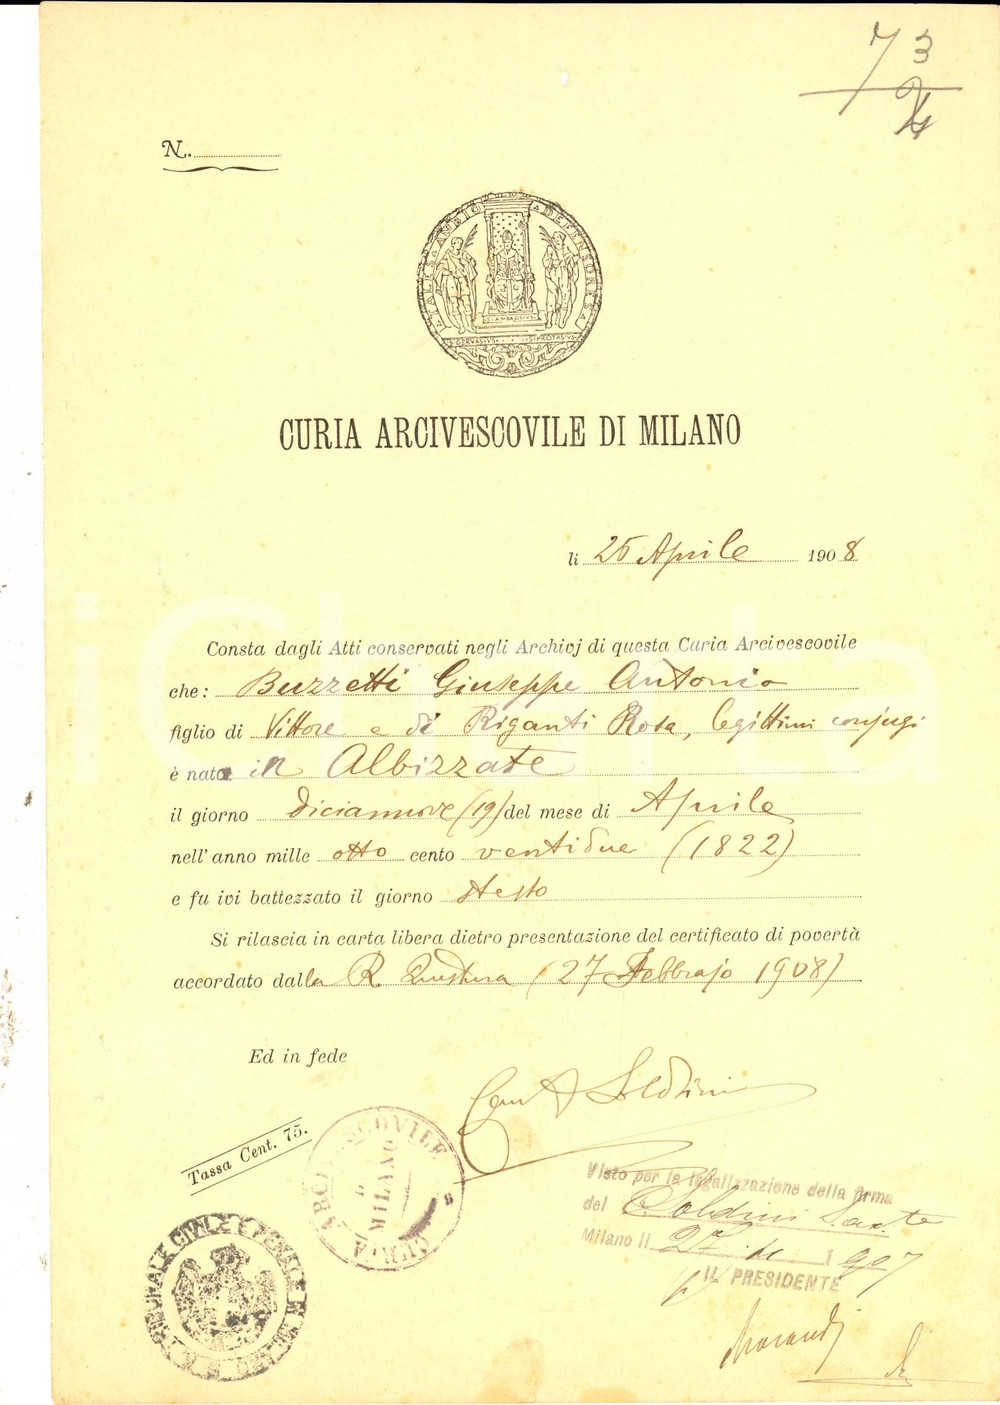 73
N.
TALES AMBIO DEFENSORES
S. AMBROSIVS
S. GERVASIVS S. PROTASIVS
CURIA ARCIVESCOVILE DI MILANO
li 25 Aprile 1908
Consta dagli Atti conservati negli Archivj di questa Curia Arcivescovile
che: Buzzetti Giuseppe Antonio
figlio di Vittore e di Riganti Rosa, legittimi conjugi
è nato in Albizzate
il giorno diciannove (19) del mese di Aprile
nell'anno mille otto cento ventidue (1822)
e fu ivi battezzato il giorno stesso
Si rilascia in carta libera dietro presentazione del certificato di povertà
accordato dalla R. Questura (27 Febbrajo 1908)
Ed in fede
Soldini
Tassa Cent. 75.
CURIA ARCIVESCOVILE
MILANO
Visto per la legalizzazione della firma
del Soldini
Milano li 27 1907
IL PRESIDENTE
Morandi
TRIBUNALE CIVILE E PENALE DI MILANO